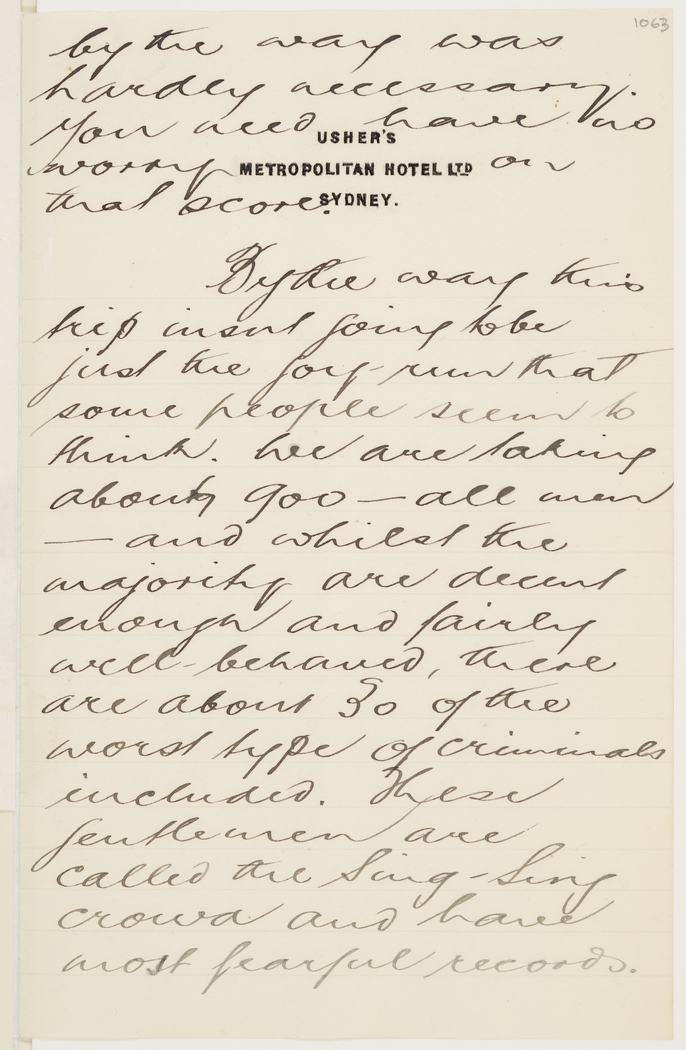 1063
by the way was
hardly necessary.
You need have no
USHER'S
worry on
METROPOLITAN HOTEL LTD
that score.
SYDNEY.
By the way this
trip insnt going to be
just the joy-run that
some people seem to
think. We are taking
about 900 — all men
— and whilst the
majority are decent
enough and fairly
well-behaved, there
are about 30 of the
worst type of criminals
included. These
gentlemen are
called the Sing-Sing
crowd and have
most fearful records.